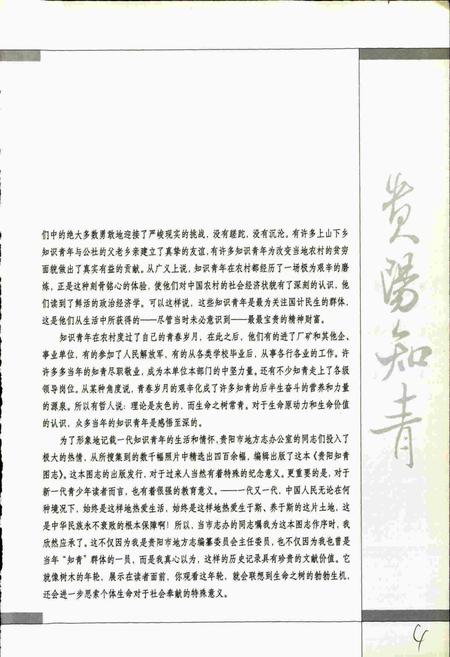 们中的绝大多数勇敢地迎接了严峻现实的挑战，没有蹉跎，没有沉沦。有许多上山下乡
知识青年与公社的父老乡亲建立了真挚的友谊，有许多知识青年为改变当地农村的贫穷
面貌做出了真实有益的贡献。从广义上说，知识青年在农村都经历了一场极为艰辛的磨
炼，正是这种刻骨铭心的体验，使他们对中国农村的社会经济状貌有了深刻的认识，他
们读到了鲜活的政治经济学。可以这样说，这些知识青年是最为关注国计民生的群体，
这是他们从生活中所获得的——尽管当时未必意识到——最最宝贵的精神财富。
知识青年在农村度过了自己的青春岁月，在此之后，他们有的进了厂矿和其他企、
事业单位，有的参加了人民解放军，有的从各类学校毕业后，从事各行各业的工作。许
许多多当年的知青尽职敬业，成为本单位本部门的中坚力量。还有不少知青走上了各级
领导岗位。从某种角度说，青春岁月的艰辛化成了许多知青的后半生奋斗的营养和力量
的源泉。所以有哲人说：理论是灰色的，而生命之树常青。对于生命原动力和生命价值
的认识，众多当年的知识青年是感悟至深的。
为了形象地记载一代知识青年的生活和情怀，贵阳市地方志办公室的同志们投入了
极大的热情，从所搜集到的数千幅照片中精选出四百余幅，编辑出版了这本《贵阳知青
图志》。这本图志的出版发行，对于过来人当然有着特殊的纪念意义。更重要的是，对于
新一代青少年读者而言，也有着很强的教育意义。——一代又一代，中国人民无论在何
种境况下，始终是这样地热爱生活，始终是这样地热爱生于斯、养于斯的这片土地，这
是中华民族永不衰败的根本保障啊！所以，当市志办的同志嘱我为这本图志作序时，我
欣然应承了。这不仅因为我是贵阳市地方志编纂委员会主任委员，也不仅因为我也曾是
当年“知青”群体的一员，而是我真心以为，这样的历史记录具有珍贵的文献价值。它
就像树木的年轮，展示在读者面前，你观看这年轮，就会联想到生命之树的勃勃生机，
还会进一步思索个体生命对于社会奉献的特殊意义。
贵阳知青
4